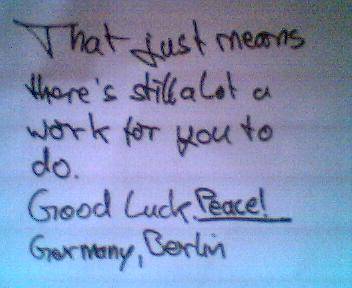 That just means
there's still a lot a
work for you to
do.
Good Luck. Peace!
Germany, Berlin